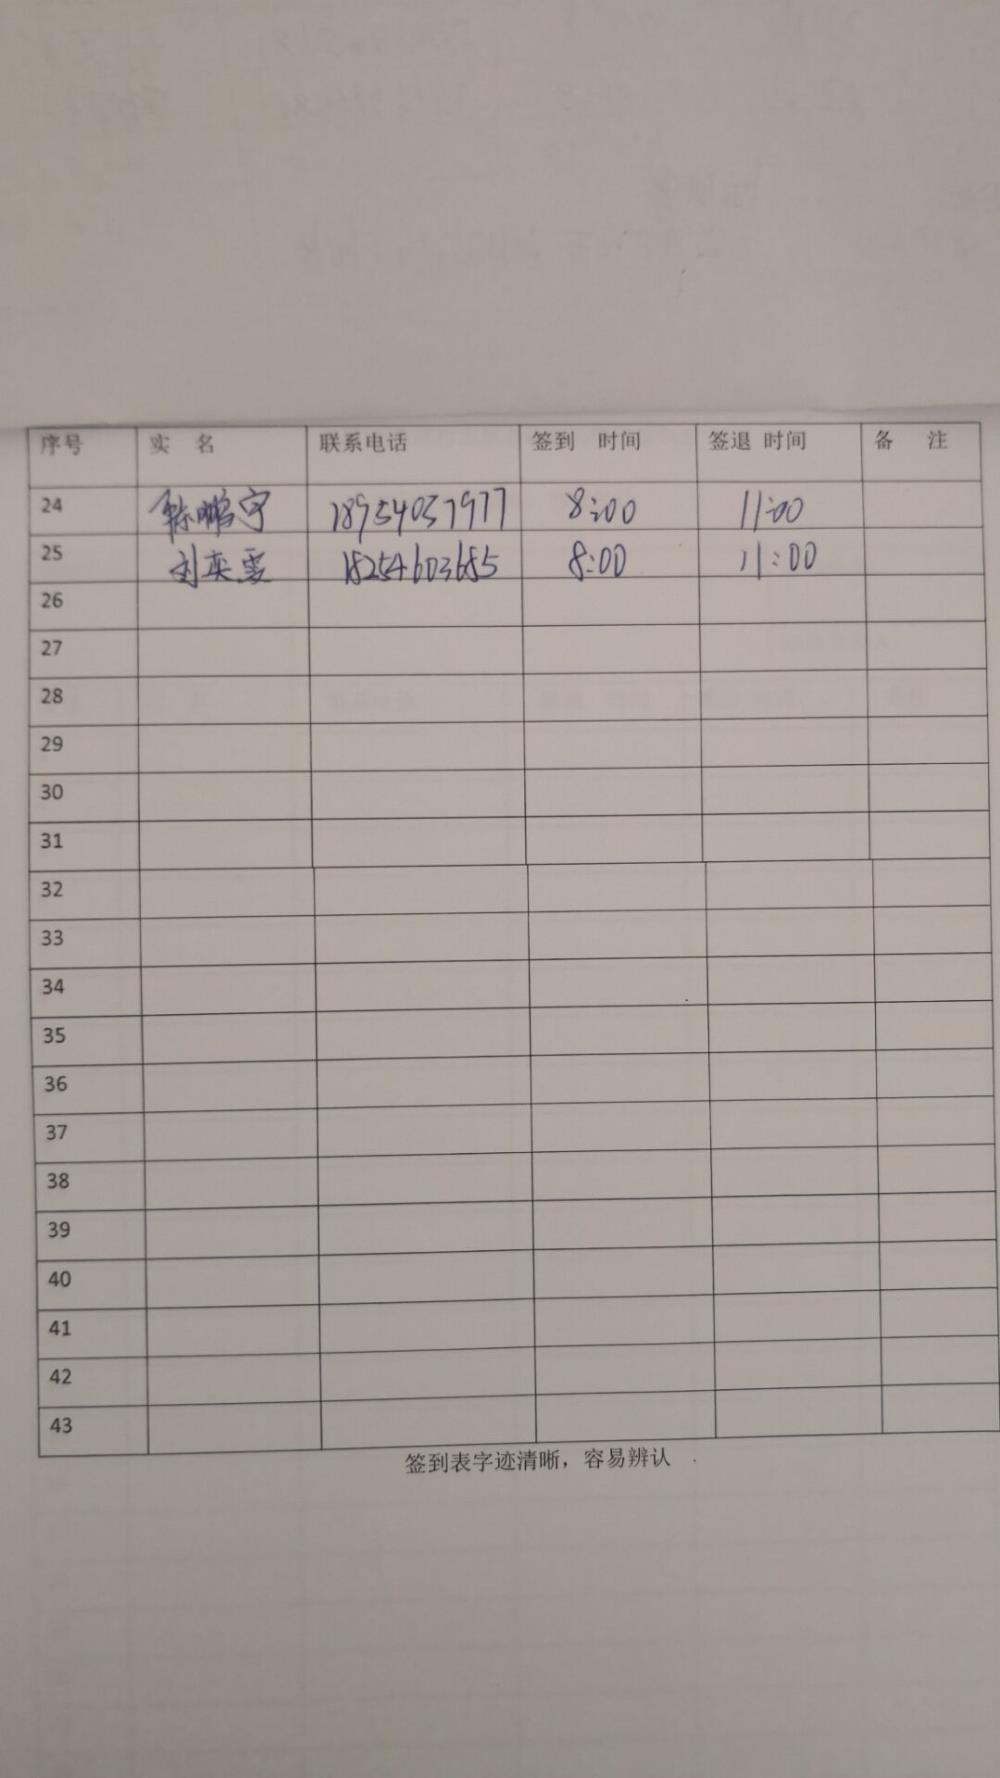 序号 实 名 联系电话 签到 时间 签退 时间 备 注
24 鹏宇 18954037977 8:00 11:00
25 刘英雯 18254603685 8:00 11:00
26
27
28
29
30
31
32
33
34
35
36
37
38
39
40
41
42
43
签到表字迹清晰，容易辨认